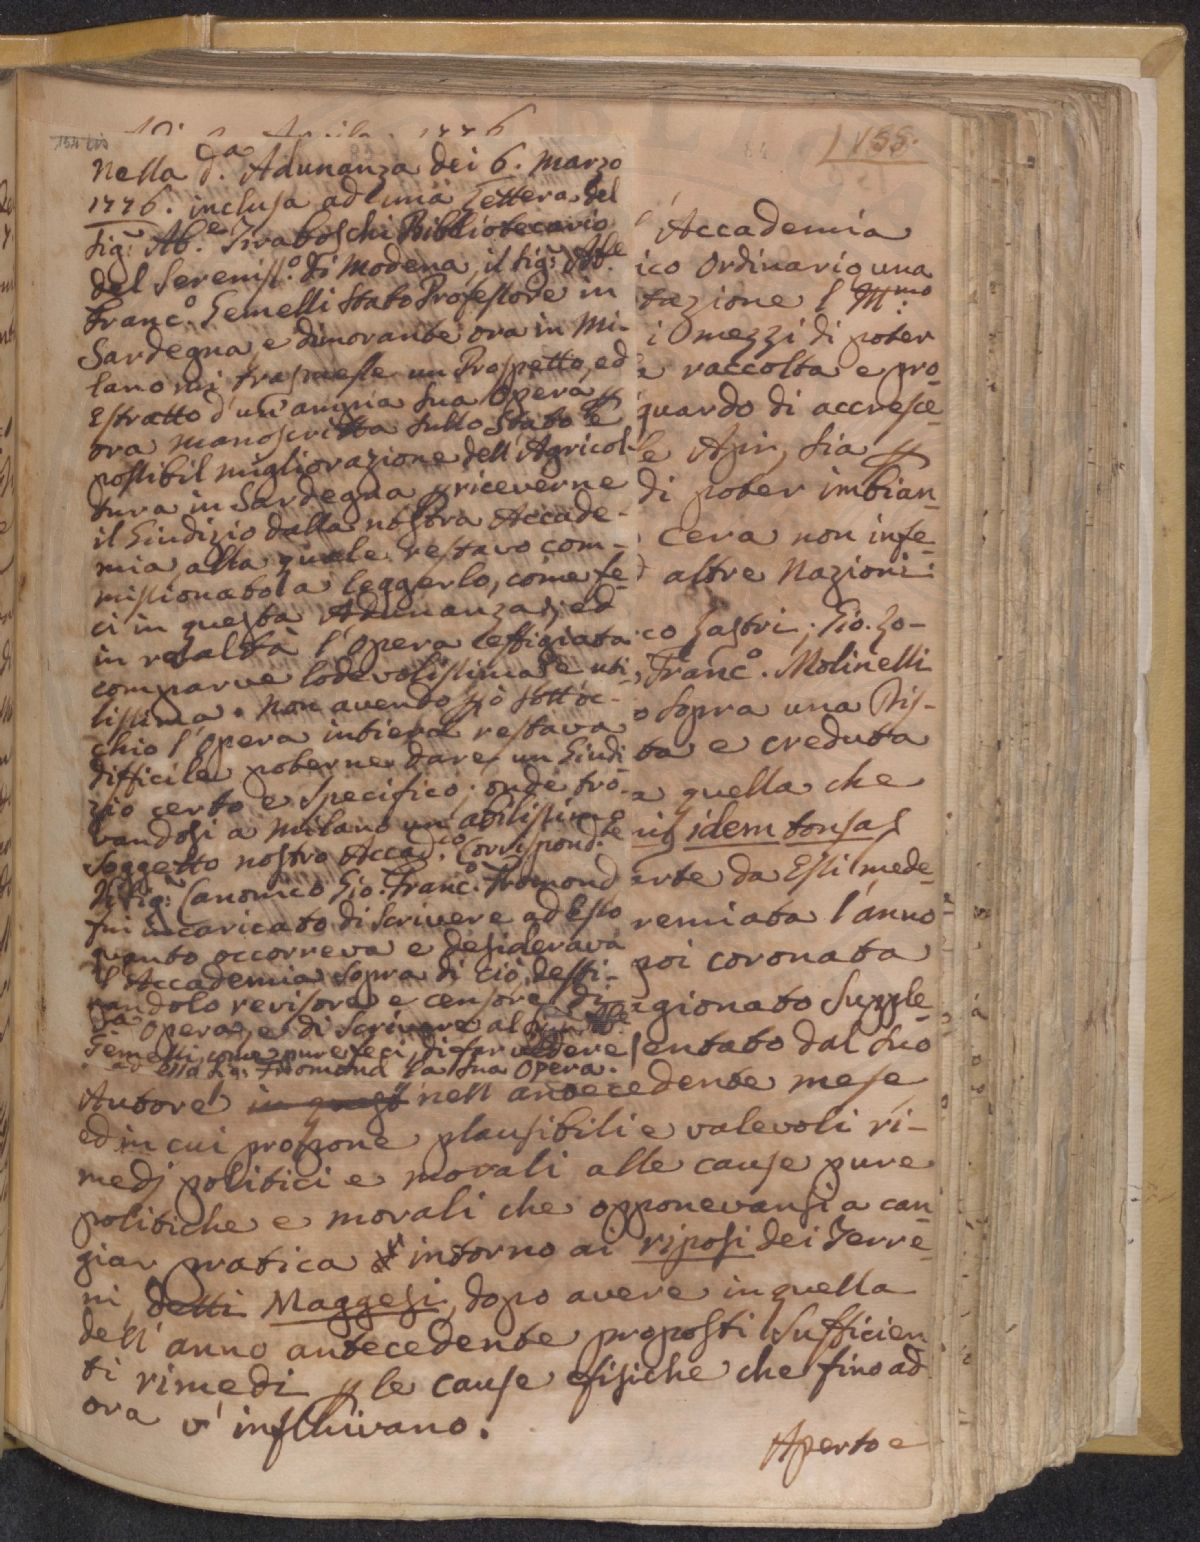 154 bis
155.
Nella d.ª Adunanza dei 6. Marzo
1776. inclusa ad una Lettera del
Sig.r Ab.e Tiraboschi Bibliotecario
del Serenis.o di Modena, il Sig.r Ab.e
Franc.o Gemelli Stato Professore in
Sardegna, e dimorante ora in Mi-
lano mi trasmesse un Prospetto, ed
Estratto d'un ampia sua Opera p
ora manoscritta sullo Stato e
possibil migliorazione dell'Agricol-
tura in Sardegna p riceverne
il Giudizio dalla nostra Accade-
mia, alla quale restavo com-
missionato a leggerlo, come fe-
ci in questa Adunanza; ed
in realtà l'Opera effigiata
comparve lodevolissima e uti-
lissima. Non avendo però sott'oc-
chio l'Opera intiera restava
difficile poterne dare un Giudi-
zio certo e specifico; onde tro-
vandosi a Milano un abilissimo
Soggetto nostro Accad.co Corrispond.te
il Sig.r Canonico Gio. Franc.o Fromond
fui incaricato di scrivere ad Esso
quanto occorreva e desiderava
l'Accademia sopra di ciò, desti-
nandolo revisore e censore di
d.ª Opera, e di scrivere al Sig.r Ab.e
Gemelli, come pure feci, di far vedere
ad esso Sig.r Fromond la sua Opera.
l'Accademia
ico Ordinario una
tazione l'Ill.mo
i Omezzi di poter
e raccolta e pro-
guardo di accresce-
le Api, sia p
di poter imbian-
cera non infe-
d altre Nazioni:
co Lastri; Gio. Lo-
, Franc.o Molinelli
o sopra una Dis-
ta e creduta
a quella che
is idem tonsas
arte da Essi mede-
remiata l'anno
poi coronata
agionato Supple-
sentato dal suo
Autore in quest nell'antecedente mese
ed in cui propone plausibili e valevoli ri-
medj politici e morali alle cause pure
politiche e morali che opponevansi a can-
giar pratica intorno ai riposi dei Terre-
ni, detti Maggesi, dopo avere in quella
dell'anno antecedente proposti sufficien-
ti rimedi p le cause efisiche che fino ad
ora v'influivano.
Aperto e